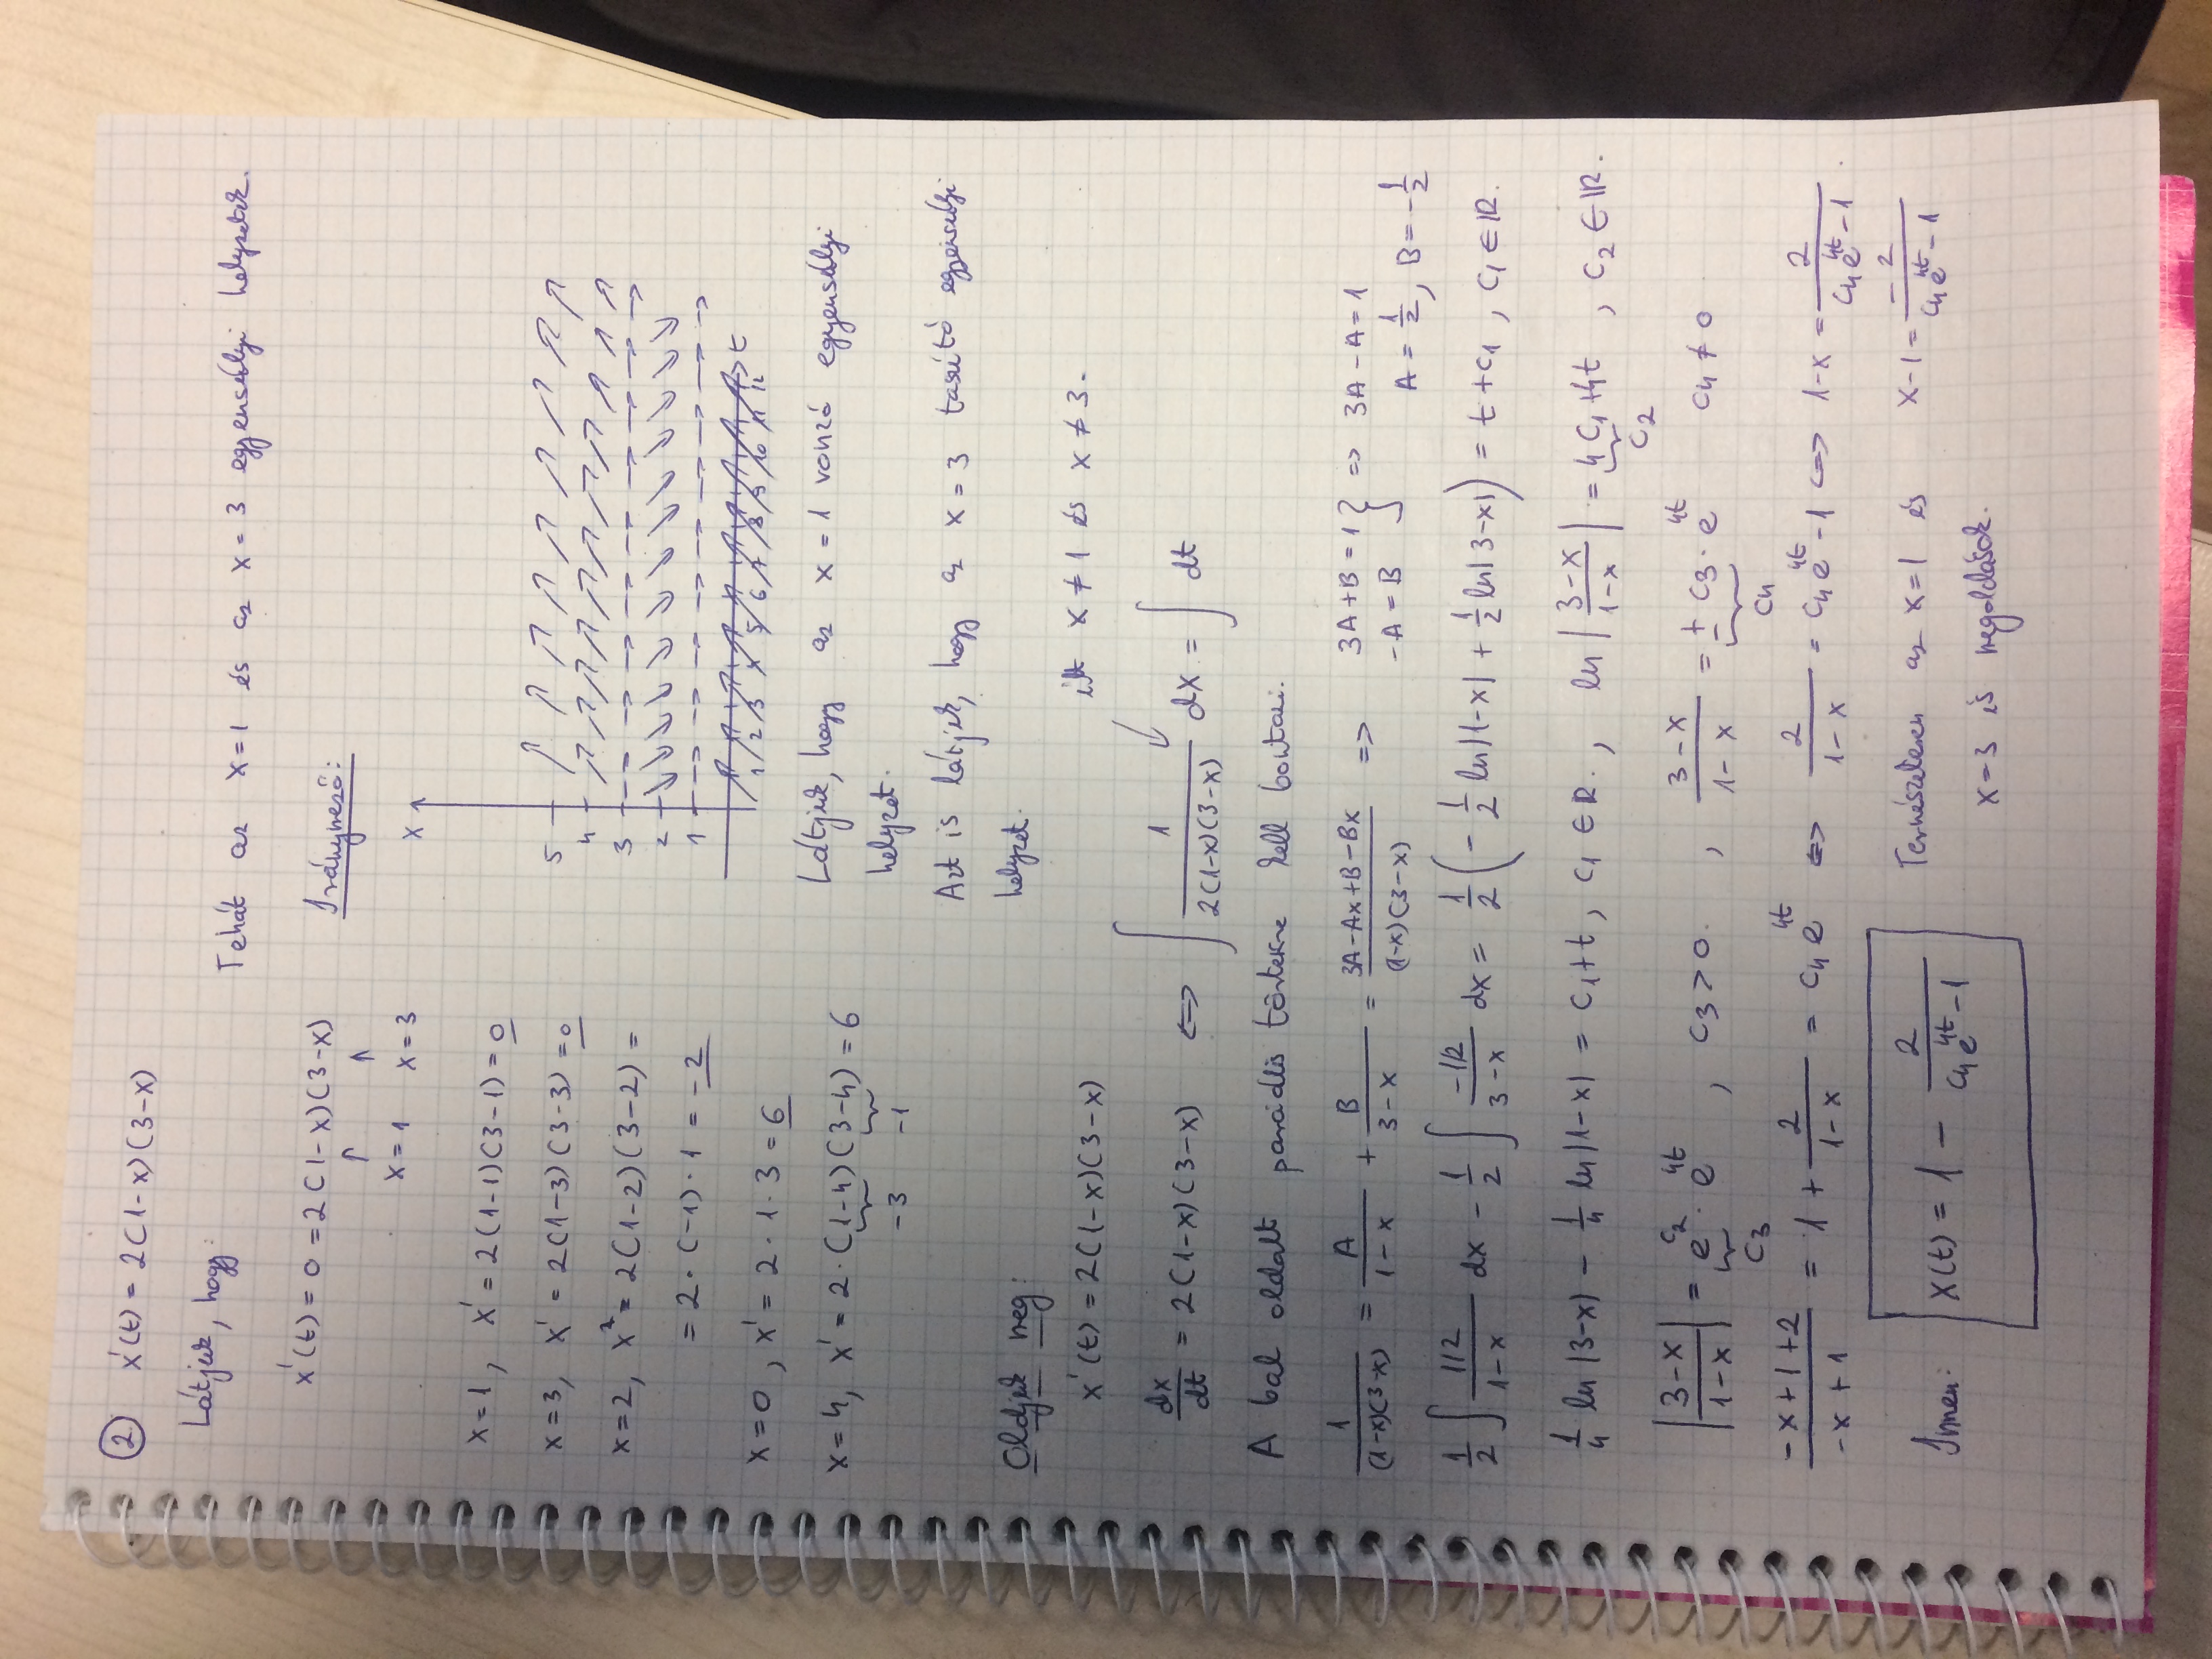 ② x'(t) = 2(1-x)(3-x)
Látjuk, hogy:
x'(t) = 0 = 2(1-x)(3-x)
↑ ↑
x=1 x=3
Tehát az x=1 és az x=3 egyensúlyi helyzetek.
x=1, x' = 2(1-1)(3-1) = 0
x=3, x' = 2(1-3)(3-3) = 0
x=2, x' = 2(1-2)(3-2) =
= 2·(-1)·1 = -2
x=0, x' = 2·1·3 = 6
x=4, x' = 2·(1-4)(3-4) = 6
-3 -1
Iránymező:
x
5
4
3
2
1
1 2 3 4 5 6 7 8 9 10 11 12 t
Látjuk, hogy az x=1 vonzó egyensúlyi
helyzet.
Azt is látjuk, hogy az x=3 taszító egyensúlyi
helyzet.
Oldjuk meg:
itt x≠1 és x≠3.
x'(t) = 2(1-x)(3-x)
dx/dt = 2(1-x)(3-x) ⇔ ∫ 1/(2(1-x)(3-x)) dx = ∫ dt
A bal oldalt parciális törtekre kell bontani.
1/((1-x)(3-x)) = A/(1-x) + B/(3-x) = (3A-Ax+B-Bx)/((1-x)(3-x)) => 3A+B=1 } => 3A-A=1
-A=B A=1/2, B=-1/2
1/2 ∫ (1/2)/(1-x) dx - 1/2 ∫ (-1/2)/(3-x) dx = 1/2 (-1/2 ln|1-x| + 1/2 ln|3-x|) = t+c₁, c₁∈ℝ.
1/4 ln|3-x| - 1/4 ln|1-x| = c₁+t, c₁∈ℝ., ln|(3-x)/(1-x)| = 4c₁+4t, c₂∈ℝ.
c₂
|(3-x)/(1-x)| = e^(c₂)·e^(4t), c₃>0., (3-x)/(1-x) = ±c₃·e^(4t) c₄≠0
c₃ c₄
(-x+1+2)/(-x+1) = 1 + 2/(1-x) = c₄e^(4t) ⇔ 2/(1-x) = c₄e^(4t)-1 ⇔ 1-x = 2/(c₄e^(4t)-1)
x-1 = -2/(c₄e^(4t)-1)
Innen: x(t) = 1 - 2/(c₄e^(4t)-1)
Természetesen az x=1 és
x=3 is megoldások.